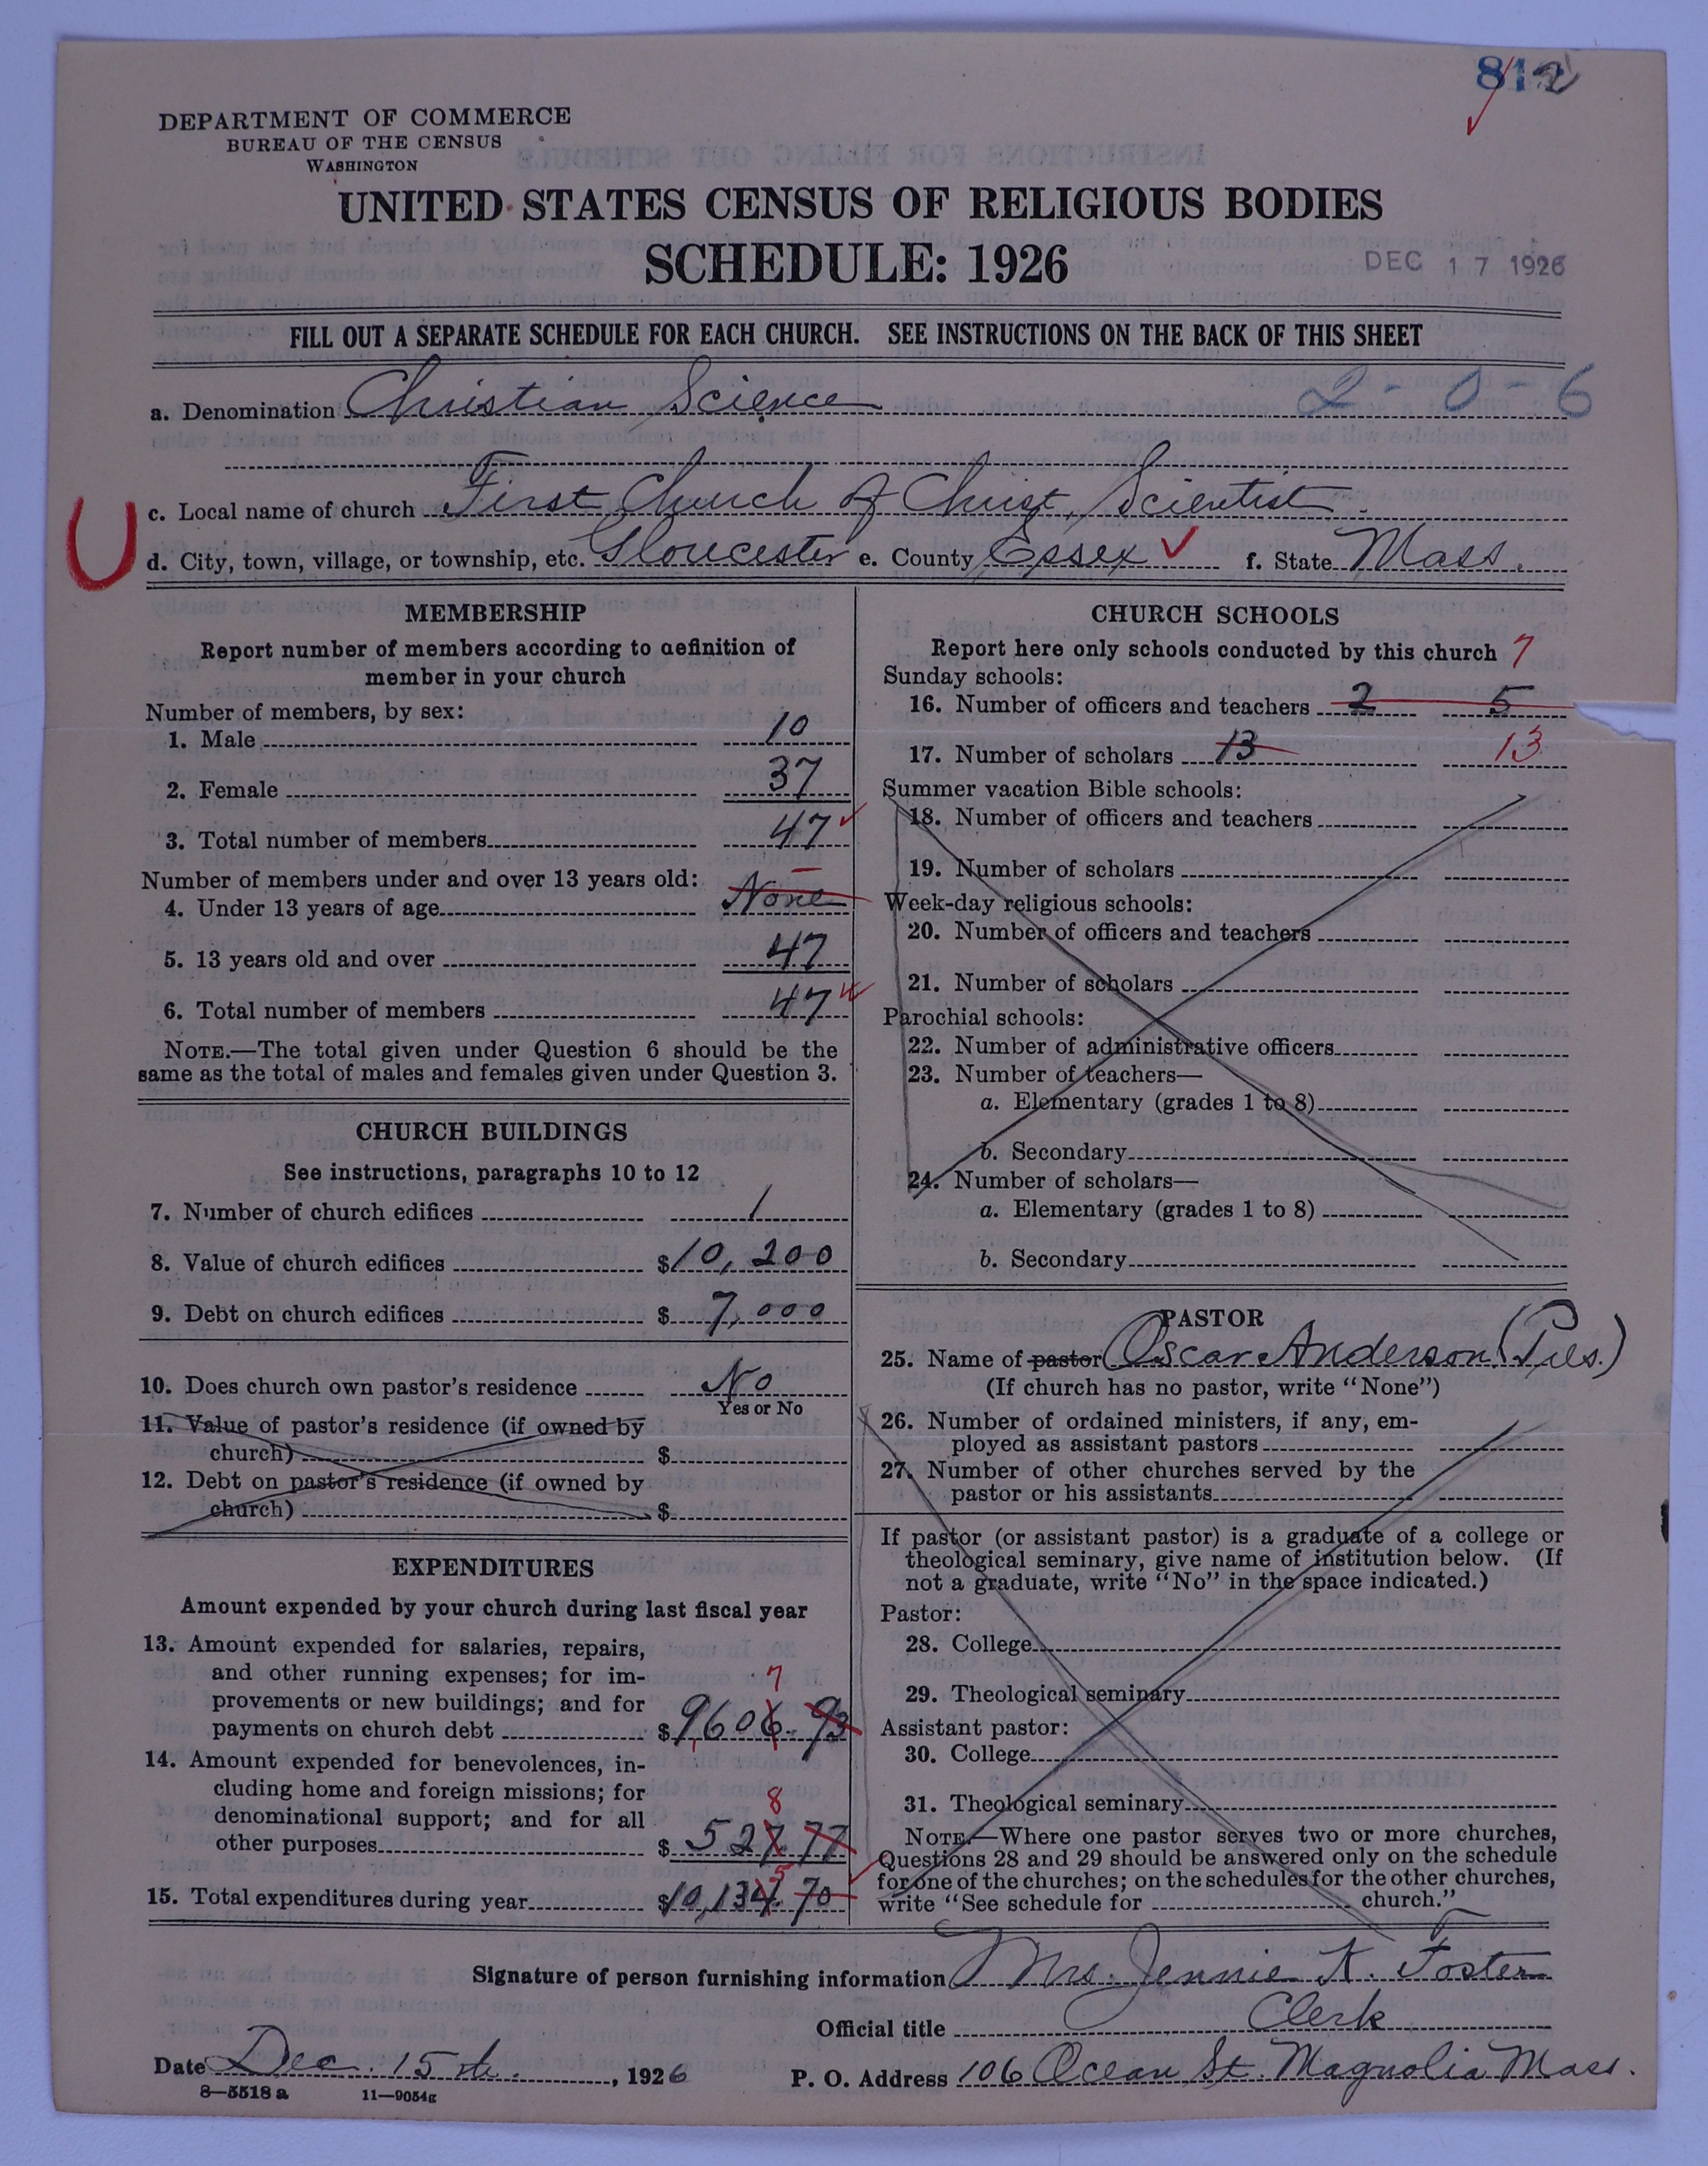 812
DEPARTMENT OF COMMERCE
BUREAU OF THE CENSUS
WASHINGTON
UNITED STATES CENSUS OF RELIGIOUS BODIES
SCHEDULE: 1926
DEC 17 1926
FILL OUT A SEPARATE SCHEDULE FOR EACH CHURCH. SEE INSTRUCTIONS ON THE BACK OF THIS SHEET
a. Denomination Christian Science 2-0-6
c. Local name of church First Church of Christ, Scientist.
U
d. City, town, village, or township, etc. Gloucester e. County Essex ✓ f. State Mass.
MEMBERSHIP
Report number of members according to definition of
member in your church
Number of members, by sex:
1. Male 10
2. Female 37
3. Total number of members 47 ✓
Number of members under and over 13 years old:
4. Under 13 years of age None –
5. 13 years old and over 47
6. Total number of members 47 ✓
NOTE.—The total given under Question 6 should be the
same as the total of males and females given under Question 3.
CHURCH BUILDINGS
See instructions, paragraphs 10 to 12
7. Number of church edifices 1
8. Value of church edifices $10,200
9. Debt on church edifices $ 7,000
10. Does church own pastor's residence No
Yes or No
11. Value of pastor's residence (if owned by
church) $
12. Debt on pastor's residence (if owned by
church) $
EXPENDITURES
Amount expended by your church during last fiscal year
13. Amount expended for salaries, repairs,
and other running expenses; for im-
7
provements or new buildings; and for
payments on church debt $9606.93
14. Amount expended for benevolences, in-
cluding home and foreign missions; for
8
denominational support; and for all
other purposes $ 527.77
5
15. Total expenditures during year $10,134.70
CHURCH SCHOOLS
Report here only schools conducted by this church 7
Sunday schools:
16. Number of officers and teachers 2 5
17. Number of scholars 13 13
Summer vacation Bible schools:
18. Number of officers and teachers
19. Number of scholars
Week-day religious schools:
20. Number of officers and teachers
21. Number of scholars
Parochial schools:
22. Number of administrative officers
23. Number of teachers—
a. Elementary (grades 1 to 8)
b. Secondary
24. Number of scholars—
a. Elementary (grades 1 to 8)
b. Secondary
PASTOR
25. Name of pastor Oscar Anderson (Pres.)
(If church has no pastor, write "None")
26. Number of ordained ministers, if any, em-
ployed as assistant pastors
27. Number of other churches served by the
pastor or his assistants
If pastor (or assistant pastor) is a graduate of a college or
theological seminary, give name of institution below. (If
not a graduate, write "No" in the space indicated.)
Pastor:
28. College
29. Theological seminary
Assistant pastor:
30. College
31. Theological seminary
NOTE.—Where one pastor serves two or more churches,
Questions 28 and 29 should be answered only on the schedule
for one of the churches; on the schedules for the other churches,
write "See schedule for church."
Signature of person furnishing information Mrs. Jennie K. Foster
Official title Clerk
Date Dec. 15th., 1926 P. O. Address 106 Ocean St. Magnolia Mass.
8—5518 a 11—9054g